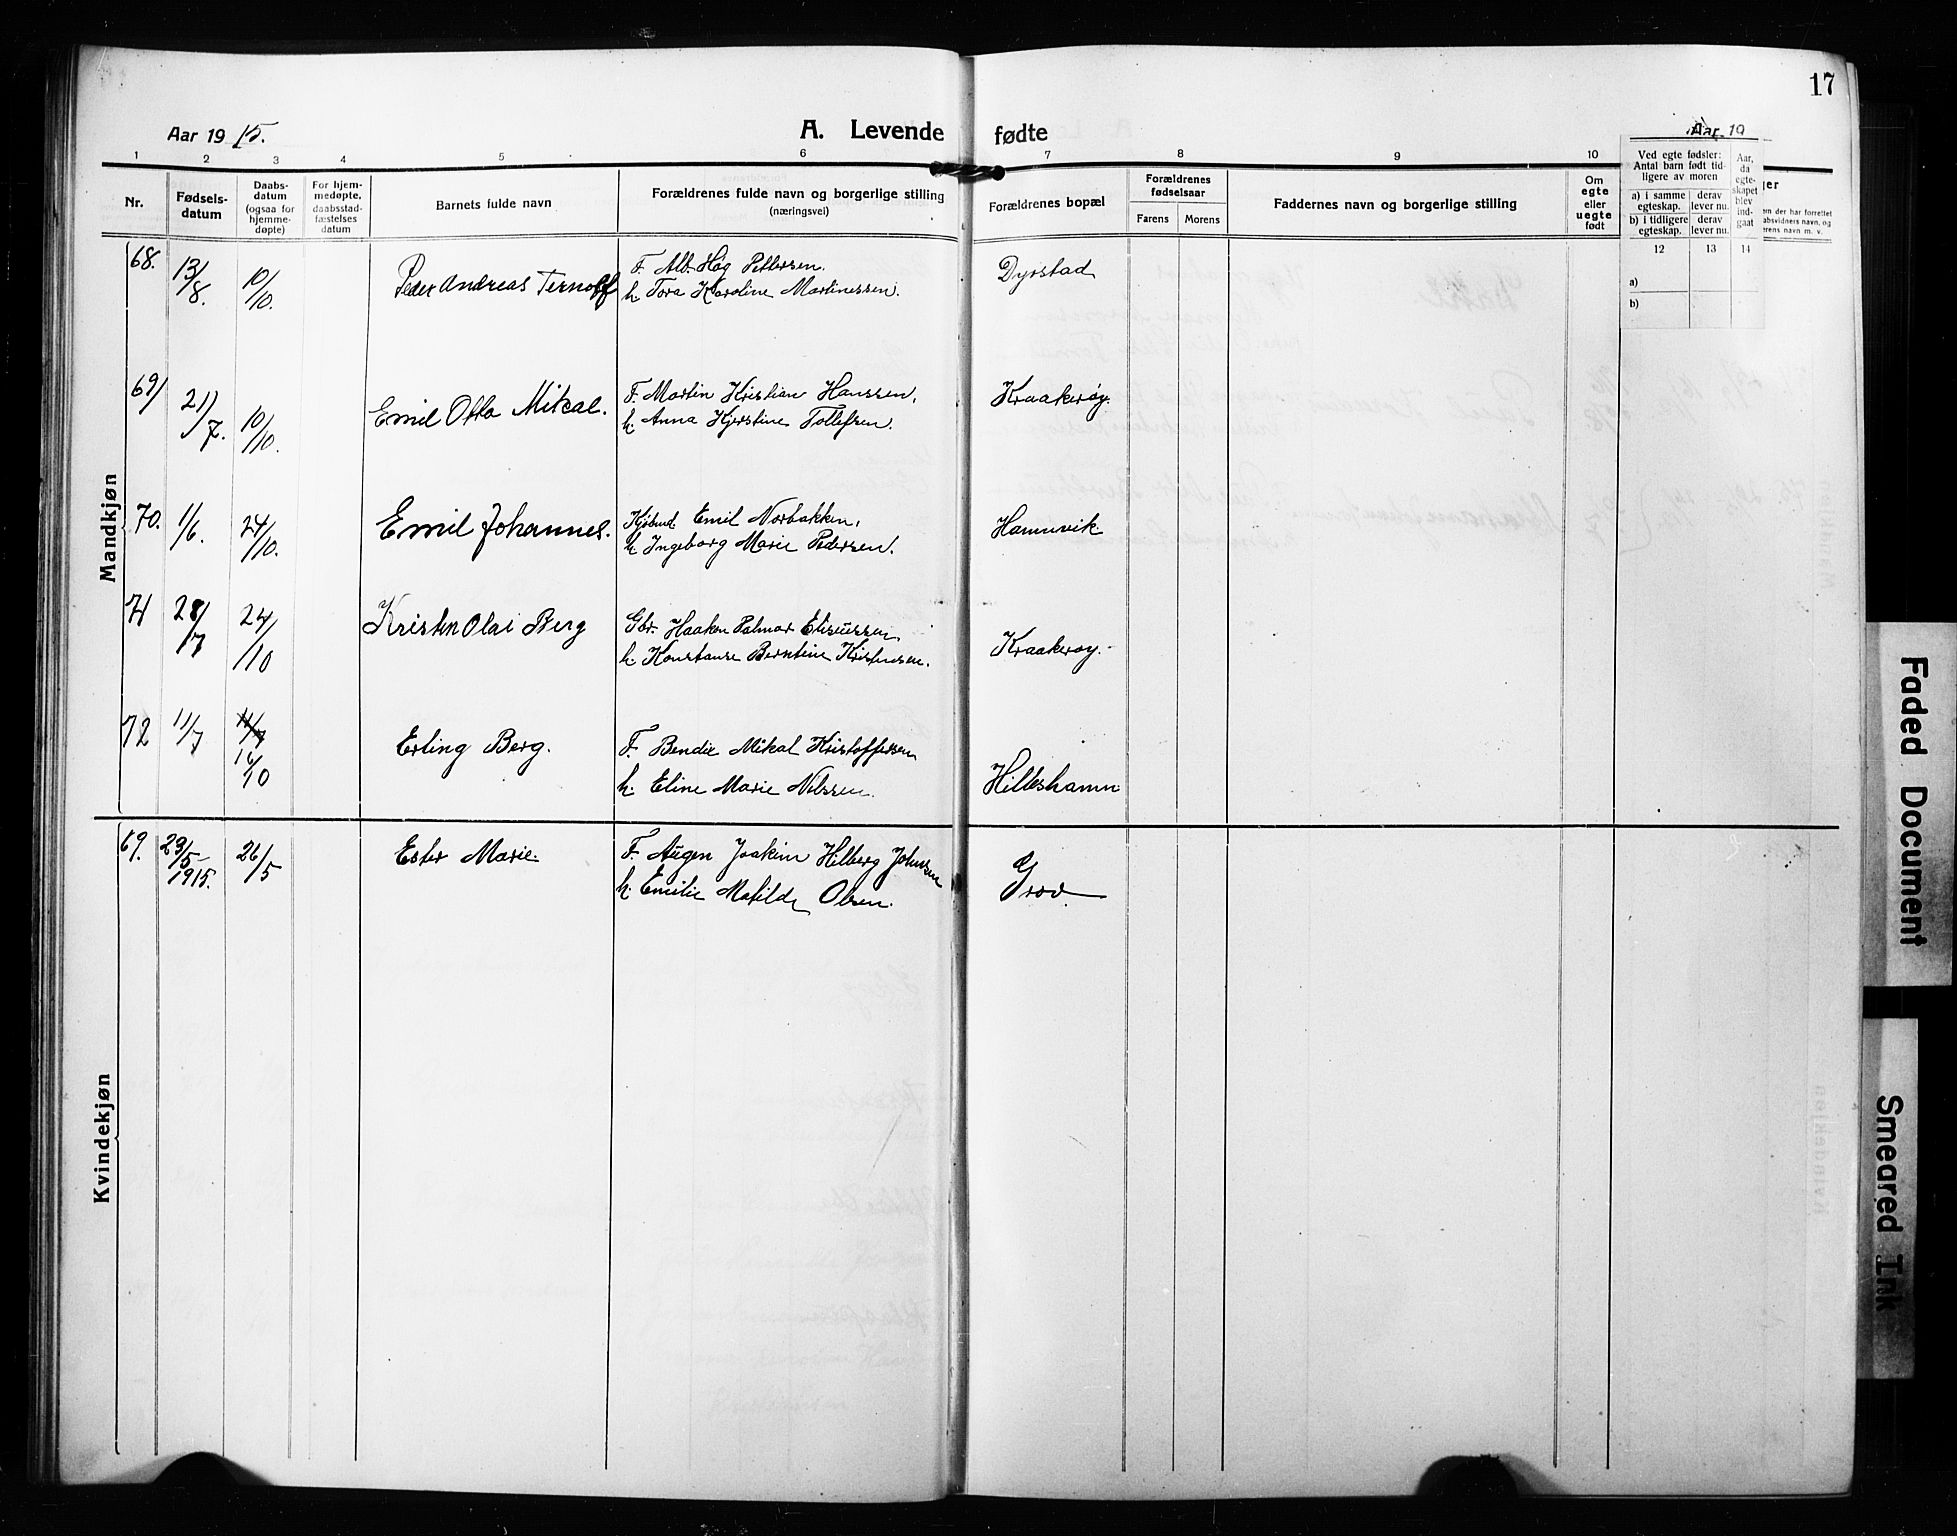 17
Aar 1915.
A. Levende fødte
Aar 19
1 2 3 4 5 6 7 8 9 10
Nr.
Fødsels-
datum
Daabs-
datum
(ogsaa for
hjemme-
døpte)
For hjem-
medøpte,
daabsstad-
fæstelses
datum
Barnets fulde navn
Forældrenes fulde navn og borgerlige stilling
(næringsvei)
Forældrenes bopæl
Forældrenes
fødselsaar
Farens Morens
Faddernes navn og borgerlige stilling
Om
egte
eller
uegte
født
Ved egte fødsler:
Antal barn født tid-
ligere av moren
a) i samme
egteskap.
derav
lever nu.
b) i tidligere
egteskap.
derav
lever nu.
Aar,
da
egte-
skapet
blev
ind-
gaat
12 13 14
a)
b)
ger
en der har forrettet
aabsvidners navn, og
erens navn m. v.
Mandkjøn
68. 13/8. 10/10. Peder Andreas Ternoff F. Alb. Hög Pettersen. Dyrstad
h. Tora Karoline Martinessen.
69/ 21/7. 10/10. Emil Otto Mikal. F. Martin Kristian Hanssen, Kraakerøy.
h. Anna Kjerstine Tollefsen.
70. 1/6. 24/10. Emil Johannes. Emil Norbakken, Hamnvik
h. Ingeborg Marie Pedersen.
71 28/7 24/10 Kristen Olai Berg Gbr. Haaken Palmar Eliseussen Kraakerøy.
h. Konstanse Berntine Kristensen.
72 11/7 11/7 16/10 Erling Berg. F. Bendic Mikal Kristoffersen
h. Eline Marie Nilssen. Hilleshamn
Kvindekjøn
69. 23/5 1915. 26/5 Ester Marie. F. Augen Joakim Hilberg Johnsen
h. Emilie Matilde Olsen. Grov
Faded Document
Smeared Ink